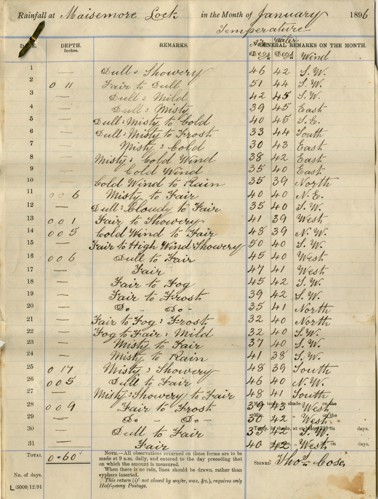 Rainfall at Maisemore Lock in the Month of January 1896
Temperature
Air Water
DATE. DEPTH. REMARKS GENERAL REMARKS ON THE MONTH.
Inches. Deg Deg Wind
1 — Dull & Showery 46 42 S.W.
2 0 11 Fair to Dull 51 44 S.W.
3 — Dull & Mild 42 45 S.W.
4 — Dull & Misty 39 45 East
5 — Dull & Misty to Cold 40 45 S.E.
6 — Dull & Misty to Frost 33 44 South
7 — Misty & Cold 30 43 East
8 — Misty & Cold Wind 38 42 East
9 — Cold Wind 35 40 East
10 — Cold Wind to Rain 35 39 North
11 0 0 6 Misty to Fair 40 40 N.E.
12 — Dull & Cloudy to Fair 35 40 S.W.
13 0 0 1 Fair to Showery 41 39 West
14 0 0 5 Cold Wind to Fair 48 39 N.W.
15 — Fair to High Wind Showery 50 40 S.W.
16 0 0 6 Dull to Fair 45 40 West
17 — Fair 47 41 West
18 — Fair to Fog 45 42 S.W.
19 — Fair to Frost 39 42 S.W.
20 — Do - Do - 35 41 North
21 — Fair to Fog & Frost 32 40 North
22 — Fog to Fair & Mild 32 40 S.W.
23 — Misty to Fair 37 40 S.W.
24 — Misty to Rain 41 38 S.W.
25 0 17 Misty & Showery 48 39 South
26 0 0 5 Dull to Fair 46 40 N.W.
27 — Misty & Showery to Fair 48 41 South
28 0 0 9 Fair to Frost 39 43 West
29 — Do - Do - 30 42 West
30 — Dull to Fair S.W. days.
31 — Fair 40 42 West
TOTAL. 0·60 NOTE.—All observations entered on these forms are to be
made at 9 a.m. daily, and entered to the day preceding that
on which the amount is measured.
When there is no rain, lines should be drawn, rather than
cyphers inserted.
No. of days. This return (if not closed by wafer, wax, &c.), requires only
Half-penny Postage.
Signed Thos. Cose
L—5000:12/94